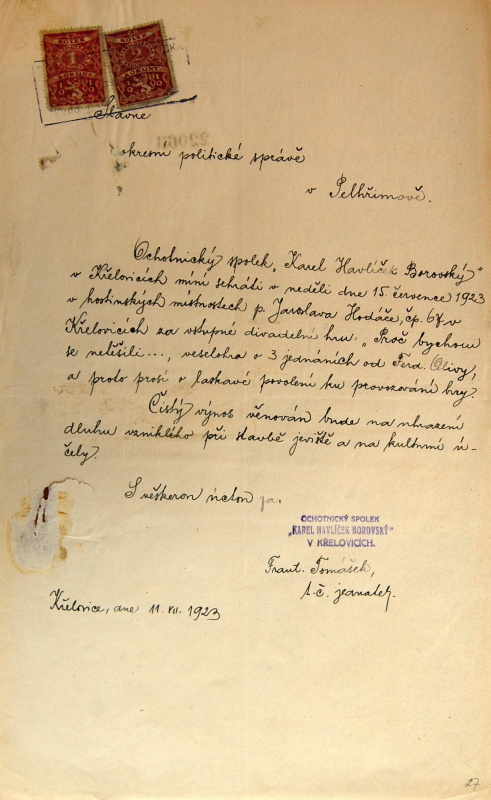 KOLEK KOLEK
1 2
KORUNA KORUNY
Slavné
okresní politické správě
v Pelhřimově.
Ochotnický spolek „Karel Havlíček Borovský"
v Křelovicích míní sehráti v neděli dne 15. července 1923
v hostinských místnostech p. Jaroslava Hodáče, čp. 67. v
Křelovicích za vstupné divadelní hru: „Proč bychom
se netěšili..., veselohra o 3 jednáních od Ferd. Olivy,
a proto prosí o laskavé povolení ku provozování hry.
Čistý výnos věnován bude na uhrazení
dluhu vzniklého při stavbě jeviště a na kulturní ú-
čely.
S veškerou úctou za:
OCHOTNICKÝ SPOLEK
„KAREL HAVLÍČEK BOROVSKÝ"
V KŘELOVICÍCH.
Frant. Tomášek,
t.č. jednatel.
Křelovice, dne 11. VII. 1923
27